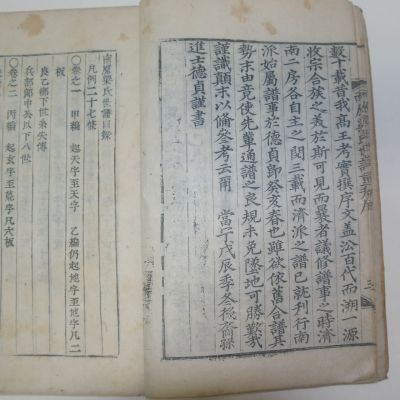 數十載昔我高王考實撰序文盖沿百代而溯一源
收宗合族之義於斯可見而曩者議修譜事之時濟
南二房各自主之閱三載而濟派之譜已就刊行南
派始屬譜事於德貞卽癸亥春也雖欲依舊合譜其
勢末由竟使先輩通譜之良規未免墜地可勝歎哉
謹識顚末以備參考云爾
進士德貞謹書
南原梁氏世譜目錄
凡例二十七條
卷之一 甲編 起天字至天字 乙編仍起地字至地字凡二
板
良乙郎下世系失傳
兵部郎中公以下八世
卷之二 丙編 起玄字至